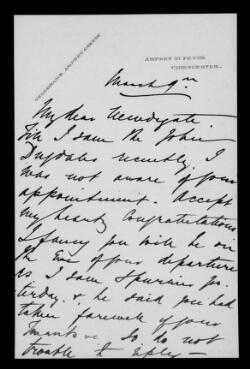 TELEGRAMS, AMPNEY CRUCIS.
AMPNEY ST PETER,
CIRENCESTER.
March 9th
My dear Newdegate
Till I saw the John
Dugdales recently, I
was not aware of your
appointment. Accept
my hearty congratulations
I fancy you will be on
the Eve of your departure
as I saw Spurling yes
terday, & he said you had
taken farewell of your
Tenants &c So do not
trouble to reply —